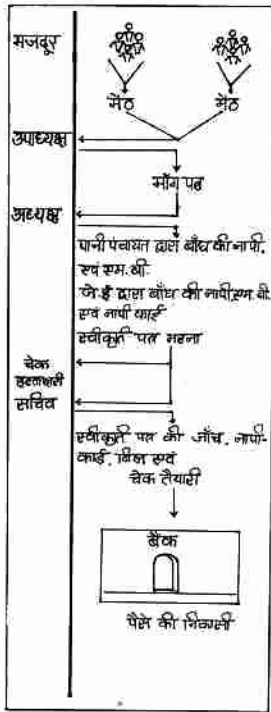 मजदूर
मेठ मेठ
उपाध्यक्ष
माँग पत्र
अध्यक्ष
पानी पंचायत द्वारा बाँध की नापी,
एवं एम.बी.
जे.ई द्वारा बाँध की नापी, एम.बी.
एवं नापी कार्ड
स्वीकृति पत्र भरना
चेक
हस्ताक्षरी
सचिव
स्वीकृति पत्र की जाँच, नापी-
कार्ड, बिल एवं
चेक तैयारी
बैंक
पैसे की निकासी